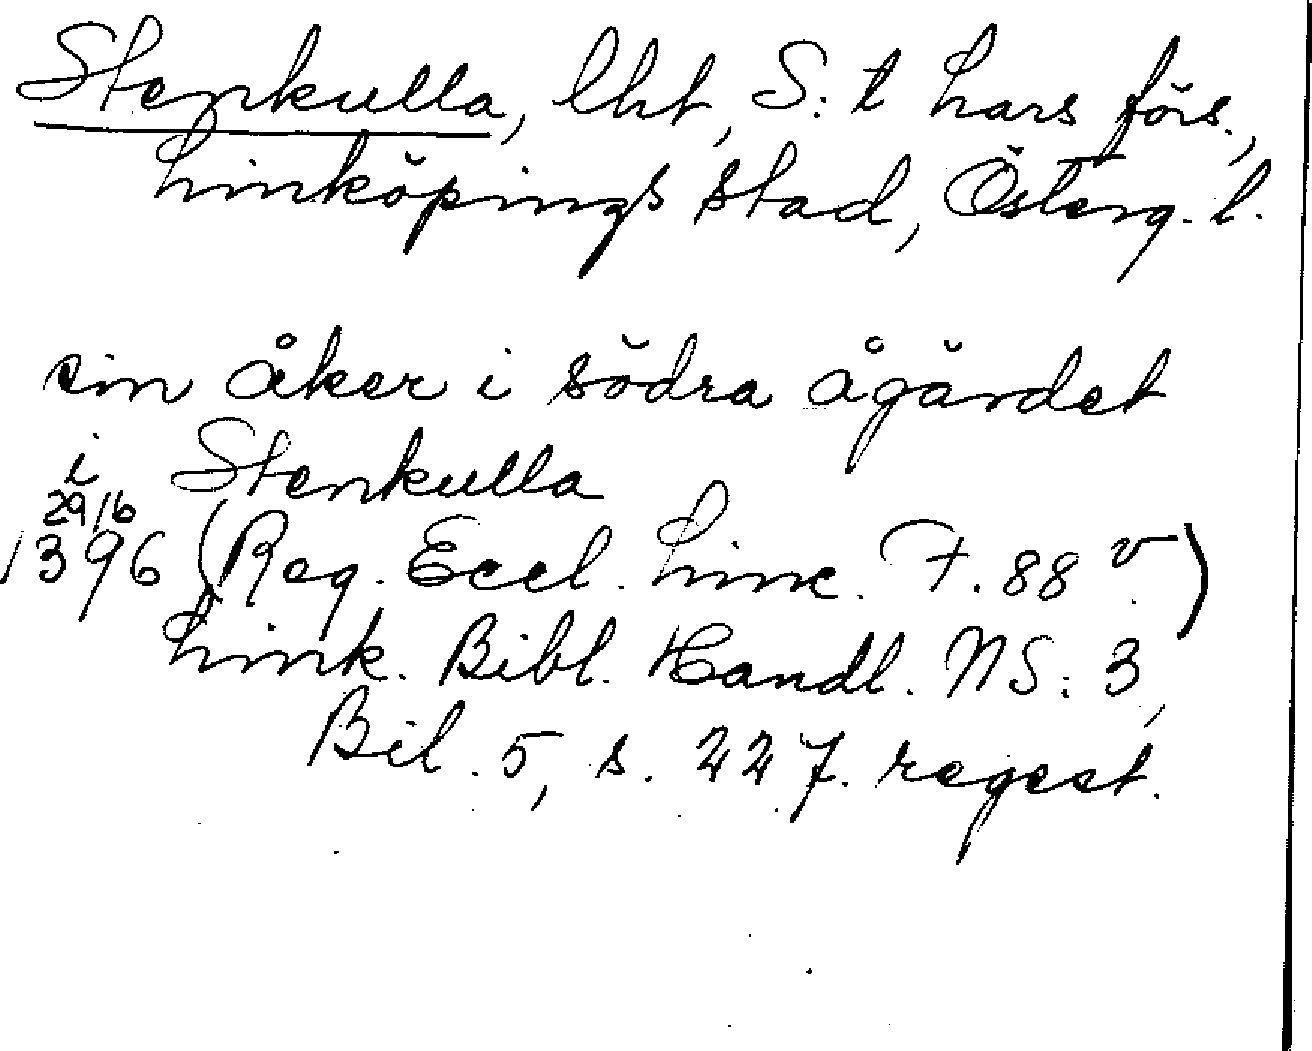 Stenkulla, lht, S:t Lars förs.,
Linköpings stad, Österg. l.
ein åker i södra ågärdet
i Stenkulla
29/6
1396 (Reg. Eccl. Linc. F. 88 v.)
Link. Bibl. Handl. NS: 3,
Bil. 5, s. 227. regest.